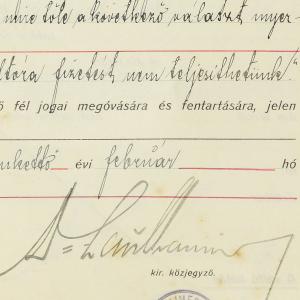 mire tőle a következő választ nyer-
fizetést nem teljesithetünk."
ő fél jogai megóvására és fentartására, jelen
évi február hó
kir. közjegyző.